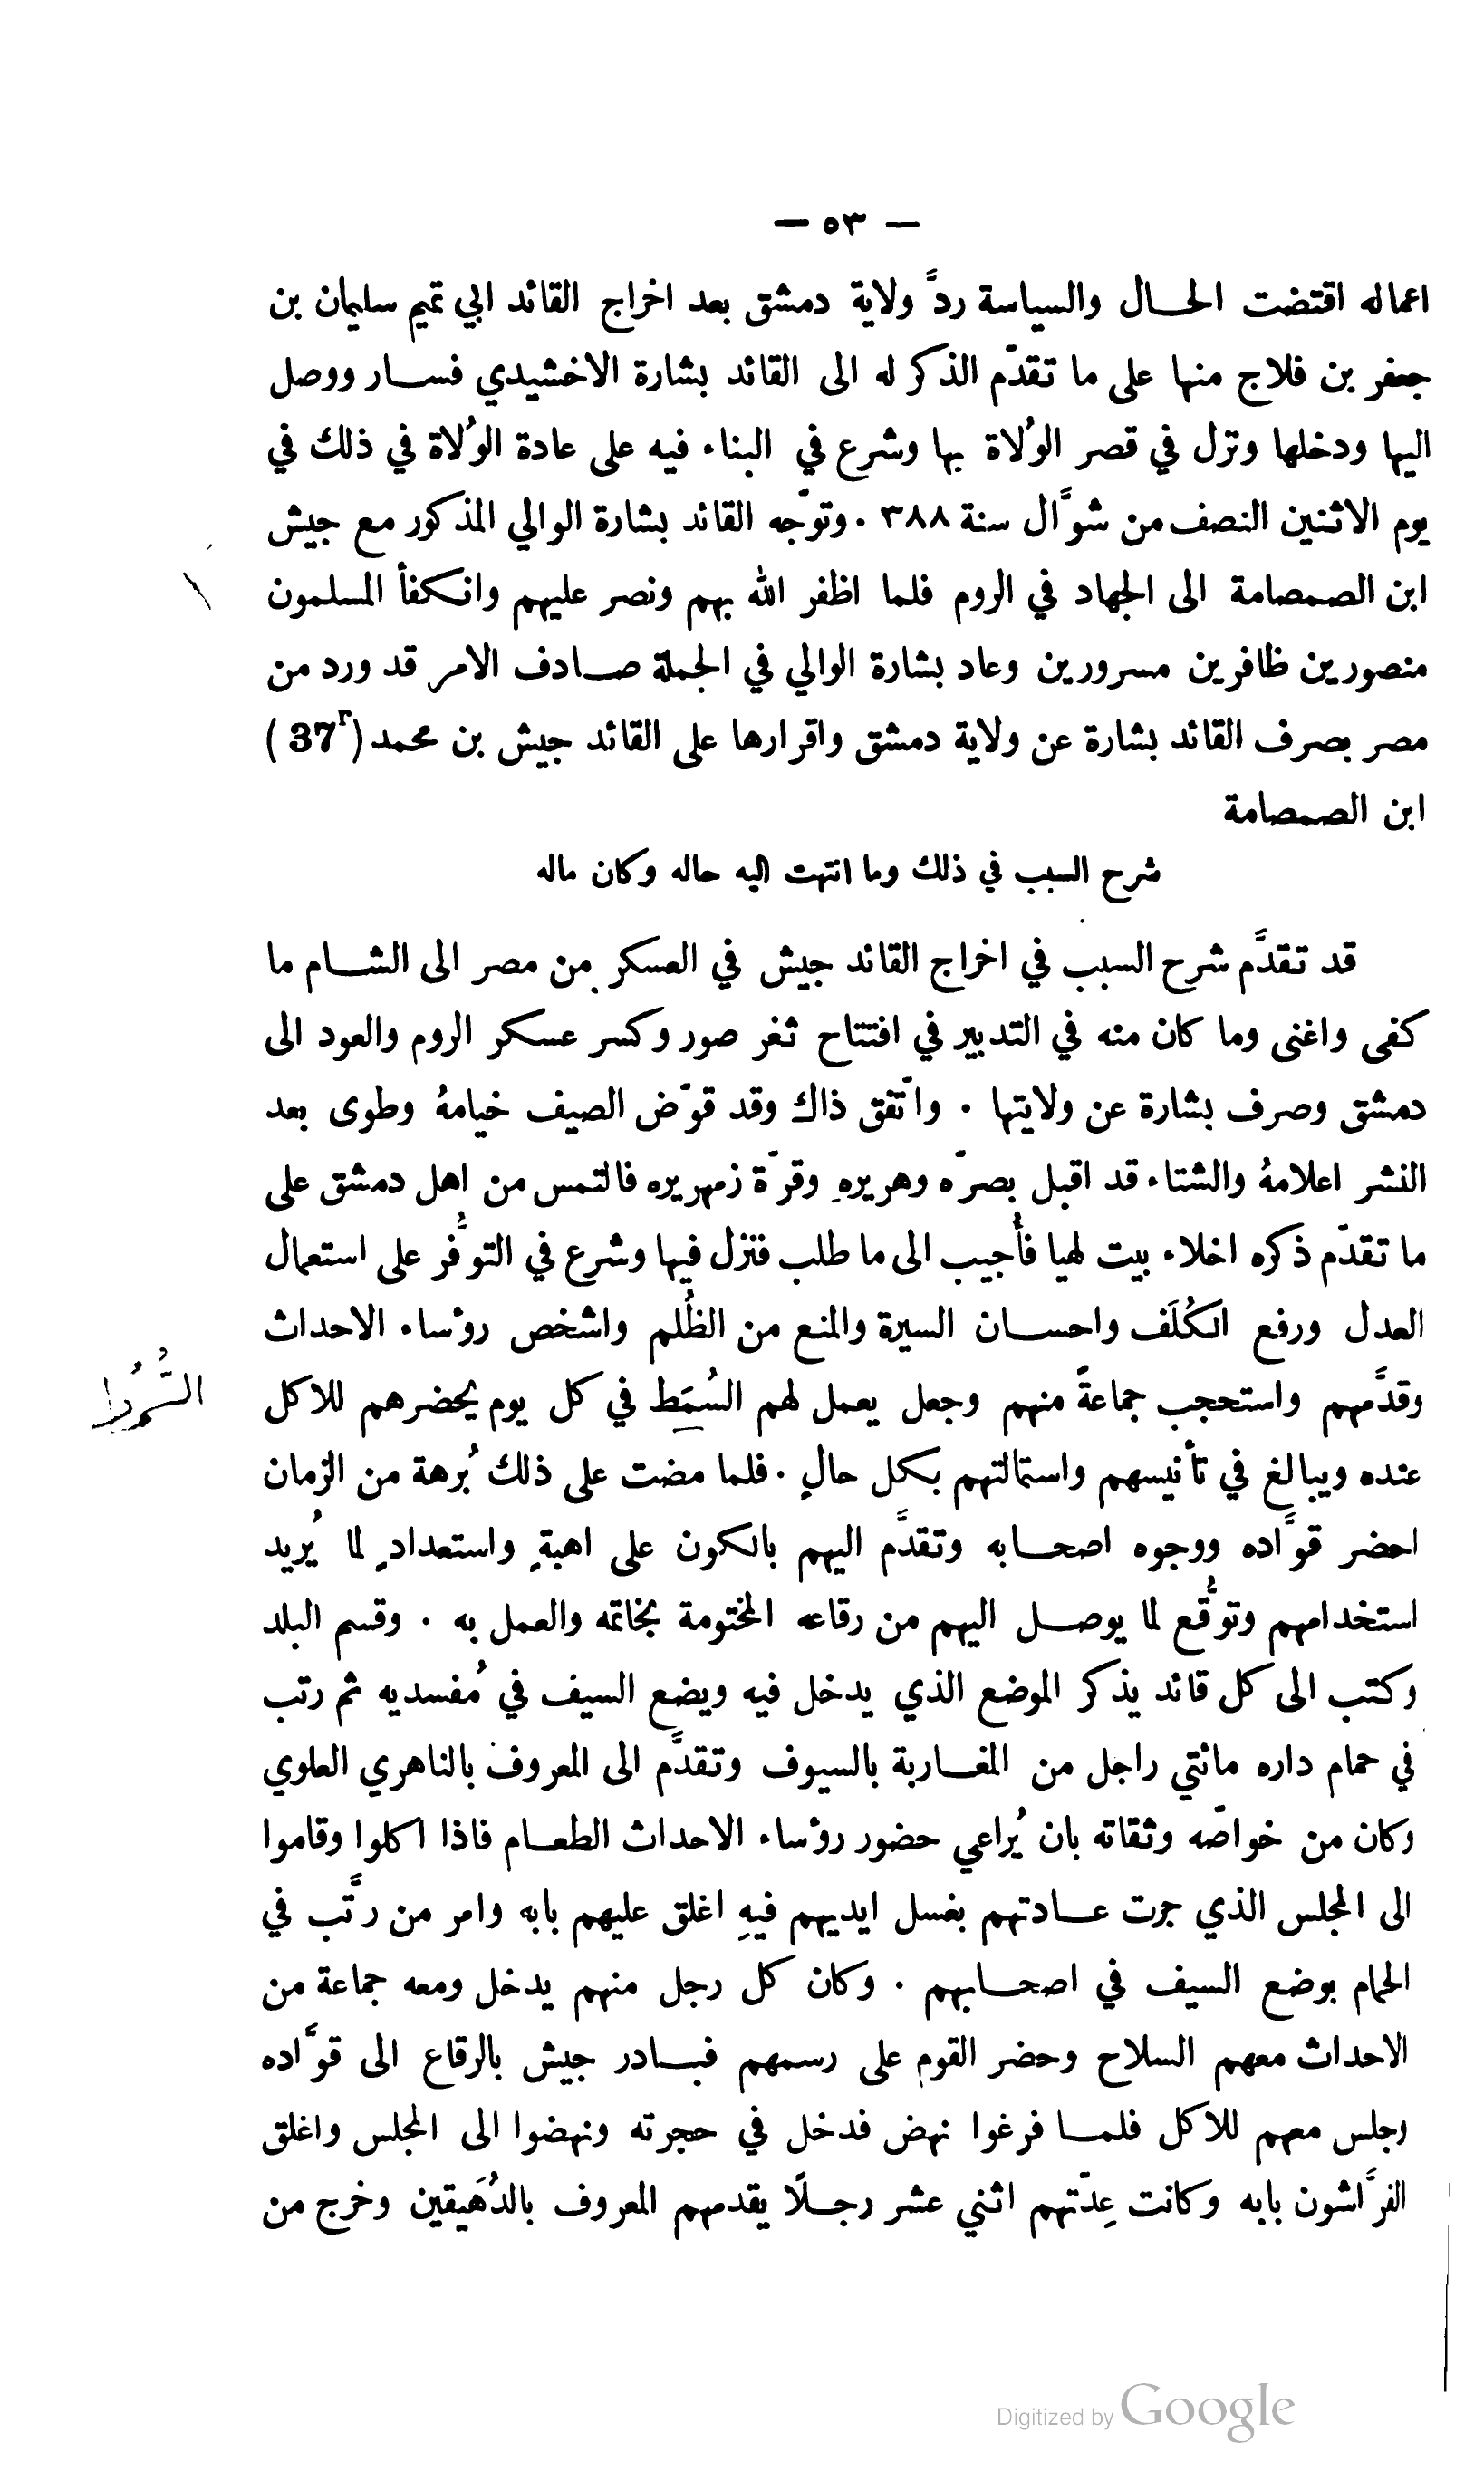 — ٥٣ —
اعماله اقتضت الحال والسياسة ردَّ ولاية دمشق بعد اخراج القائد ابي تميم سليمان بن
جعفر بن فلاح منها على ما تقدّم الذكر له الى القائد بشارة الاخشيدي فسار ووصل
اليها ودخلها ونزل في قصر الوُلاة بها وشرع في البناء فيه على عادة الوُلاة في ذلك في
يوم الاثنين النصف من شوَّال سنة ٣٨٨ . وتوجّه القائد بشارة الوالي المذكور مع جيش
ابن الصمصامة الى الجهاد في الروم فلما اظفر الله بهم ونصر عليهم وانكفأ المسلمون
منصورين ظافرين مسرورين وعاد بشارة الوالي في الجملة صادف الامر قد ورد من
مصر بصرف القائد بشارة عن ولاية دمشق واقرارها على القائد جيش بن محمد (37r)
ابن الصمصامة
شرح السبب في ذلك وما انتهت اليه حاله وكان ماله
قد تقدَّم شرح السبب في اخراج القائد جيش في العسكر من مصر الى الشام ما
كفى واغنى وما كان منه في التدبير في افتتاح ثغر صور وكسر عسكر الروم والعود الى
دمشق وصرف بشارة عن ولايتها . واتّفق ذاك وقد قوّض الصيف خيامهُ وطوى بعد
النشر اعلامهُ والشتاء قد اقبل بصرّه وهريرهِ وقرّة زمهريره فالتمس من اهل دمشق على
ما تقدّم ذكره اخلاء بيت لهيا فأُجيب الى ما طلب فنزل فيها وشرع في التوفُّر على استعمال
العدل ورفع الكُلَف واحسان السيرة والمنع من الظُلم واشخص روٴساء الاحداث
وقدَّمهم واستحجب جماعةً منهم وجعل يعمل لهم السُمَط في كل يوم يحضرهم للاكل
عنده ويبالغ في تأنيسهم واستمالتهم بكل حالٍ . فلما مضت على ذلك بُرهة من الزمان
احضر قوَّاده ووجوه اصحابه وتقدَّم اليهم بالكون على اهبةٍ واستعدادٍ لما يُريد
استخدامهم وتوقُّع لما يوصل اليهم من رقاعه المختومة بخاتمه والعمل به . وقسم البلد
وكتب الى كل قائد يذكر الموضع الذي يدخل فيه ويضع السيف في مُفسديه ثم رتب
في حمام داره مائتي راجل من المغاربة بالسيوف وتقدَّم الى المعروف بالناهري العلوي
وكان من خواصّه وثقاته بان يُراعي حضور روٴساء الاحداث الطعام فاذا اكلوا وقاموا
الى المجلس الذي جرت عادتهم بغسل ايديهم فيهِ اغلق عليهم بابه وامر من رتَّب في
الحمام بوضع السيف في اصحابهم . وكان كل رجل منهم يدخل ومعه جماعة من
الاحداث معهم السلاح وحضر القوم على رسمهم فبادر جيش بالرقاع الى قوَّاده
وجلس معهم للاكل فلما فرغوا نهض فدخل في حجرته ونهضوا الى المجلس واغلق
الفرَّاشون بابه وكانت عِدّتهم اثني عشر رجلًا يقدمهم المعروف بالدُهَيقين وخرج من
Digitized by Google